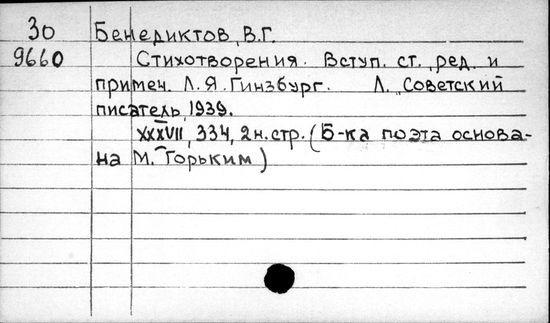 30 Бенедиктов, В.Г.
9660 Стихотворения. Вступ. ст., ред. и
примеч. Л.Я. Гинзбург. Л., Советский
писатель, 1939.
XXXVII, 334, 2 н.стр. (Б-ка поэта основа-
на М. Горьким)